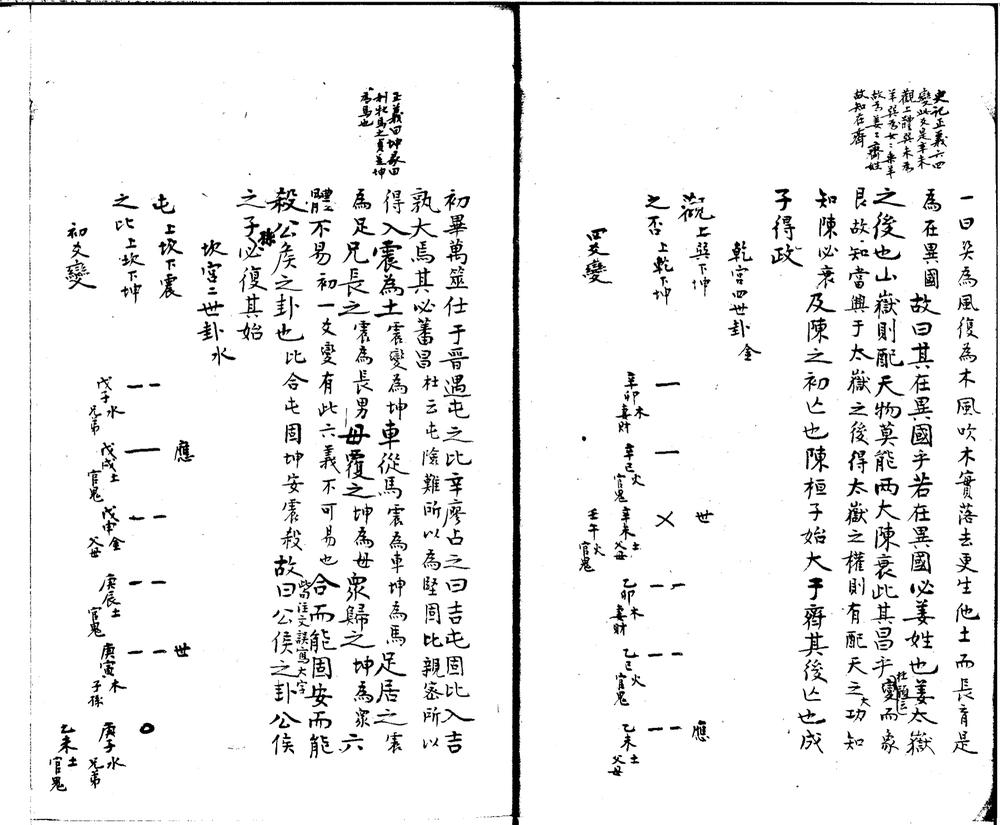 史記正義六四
變此爻是辛未
觀上體巽未為
羊巽為女女乘羊
故為姜姜齊姓
故知在齊
一曰巽為風復為木風吹木實落去更生他土而長育是
為在異國 故曰其在異國乎若在異國必姜姓也姜太嶽
之後也山嶽則配天物莫能兩大陳衰此其昌乎 變而象
艮故知當興于太嶽之後得太嶽之權則有配天之大功知
知陳必衰 及陳之初亡也陳桓子始大于齊其後亡也成
子得政
乾宮四世卦金
觀 上巽下坤
之否 上乾下坤
四爻變
辛卯木 妻財
辛巳火 官鬼
世 辛未土 父母
壬午火 官鬼
乙卯木 妻財
乙巳火 官鬼
應 乙未土 父母
正義曰坤彖曰
利牝馬之貞是坤
為馬也
初畢萬筮仕于晉遇屯之比辛廖占之曰吉屯固比入吉
孰大焉其必蕃昌 杜云屯險難所以為堅固比親密所以
得入 震為土 震變為坤 車從馬 震為車坤為馬 足居之 震
為足 兄長之 震為長男 母覆之 坤為母 眾歸之 坤為眾 六
體不易 初一爻變有此六義不可易也 合而能固安而能
殺公侯之卦也 比合屯固坤安震殺 故曰公侯之卦公侯
皆注文誤寫大字
之子孫必復其始
坎宮二世卦水
屯 上坎下震
之比 上坎下坤
初爻變
戊子水 兄弟
應 戊戌土 官鬼
戊申金 父母
庚辰土 官鬼
世 庚寅木 子孫
庚子水 兄弟
乙未土 官鬼